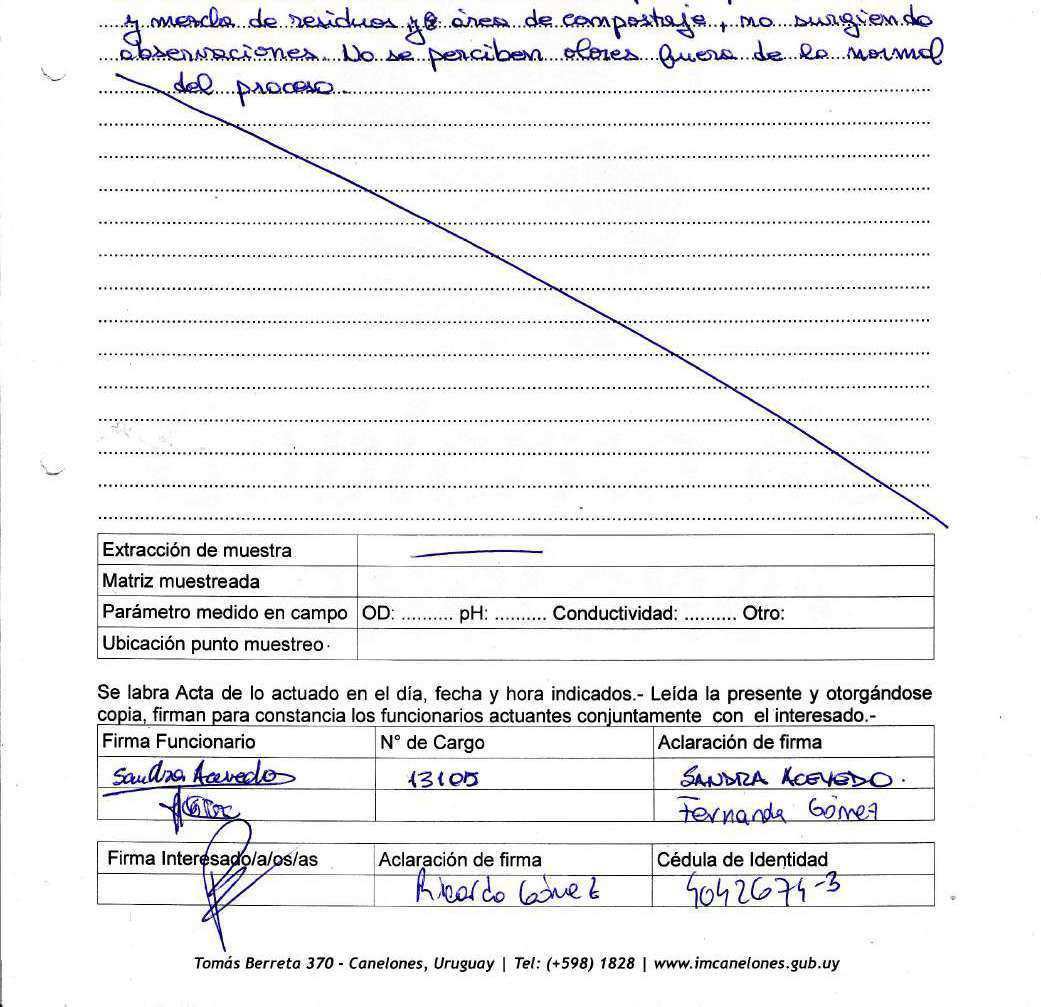 y mezcla de residuos y área de compostaje, no surgiendo
observaciones. No se perciben olores fuera de lo normal
del proceso.
Extracción de muestra
Matriz muestreada
Parámetro medido en campo OD: .......... pH: .......... Conductividad: .......... Otro:
Ubicación punto muestreo
Se labra Acta de lo actuado en el día, fecha y hora indicados.- Leída la presente y otorgándose
copia, firman para constancia los funcionarios actuantes conjuntamente con el interesado.-
Firma Funcionario N° de Cargo Aclaración de firma
Sandra Acevedo 13105 SANDRA ACEVEDO.
Fernanda Gómez
Firma Interesado/a/os/as Aclaración de firma Cédula de Identidad
Ricardo Gómez 4042674-3
Tomás Berreta 370 - Canelones, Uruguay | Tel: (+598) 1828 | www.imcanelones.gub.uy